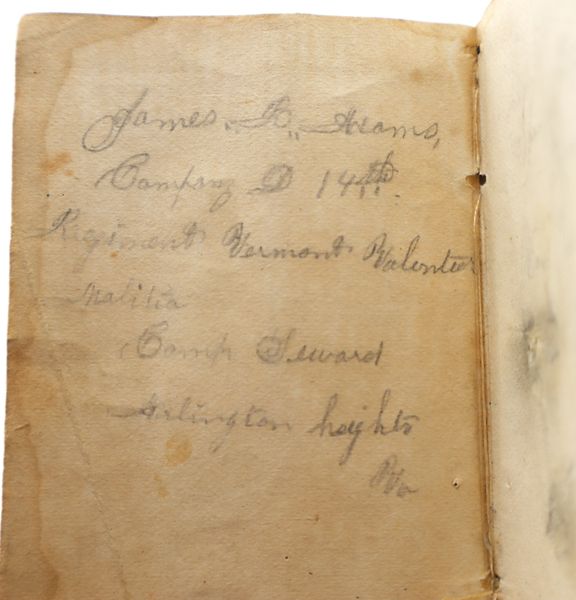 James. R. Adams,
Company D 14th.
Regiment Vermont Volenteer
Malitia
Camp Seward
Arlington heights
Va